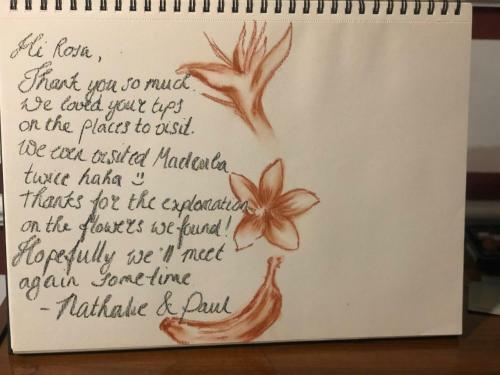 Hi Rosa,
Thank you so much.
We loved your tips
on the places to visit.
We even visited Madenba
twice haha :)
Thanks for the explanation
on the flowers we found!
Hopefully we'll meet
again sometime
- Nathalie & Paul